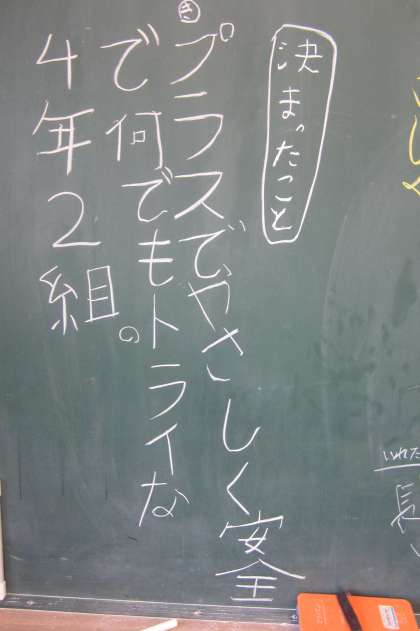 決まったこと
き
プラスでやさしく安全
で何でもトライな
４年２組。
の
いれた
長